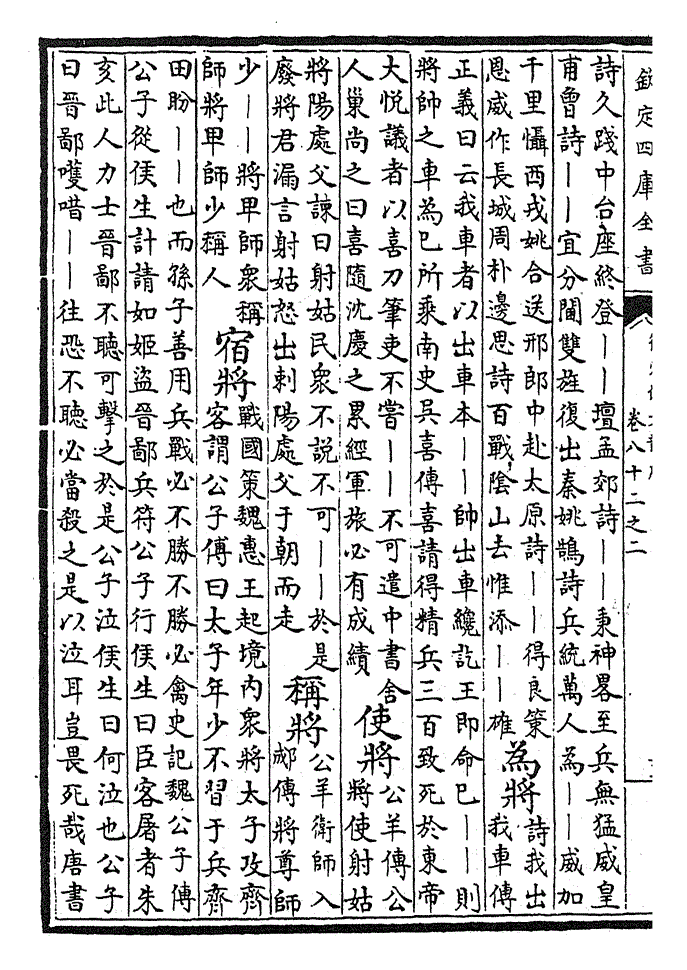 欽定四庫全書
卷八十二之二
詩久踐中台座終登——壇孟郊詩——秉神畧至兵無猛威皇
甫曾詩——宜分閫雙旌復出秦姚鵠詩兵統萬人為——威加
千里懾西戎姚合送邢郎中赴太原詩——得良策
恩威作長城周朴邊思詩百戰陰山去惟添——雄
為將
詩我出
我車傳
正義曰云我車者以出車本——帥出車纔訖王即命巳——則
將帥之車為巳所乘南史吳喜傳喜請得精兵三百致死於東帝
大悅議者以喜刀筆吏不嘗——不可遣中書舍
人巢尚之曰喜隨沈慶之累經軍旅必有成績
使將
公羊傳公
將使射姑
將陽處父諫曰射姑民衆不說不可——於是
廢將君漏言射姑怒出刺陽處父于朝而走
稱將
公羊衛師入
郕傳將尊師
少——將卑師衆稱
師將卑師少稱人
宿將
戰國策魏惠王起境内衆將太子攻齊
客謂公子傅曰太子年少不習于兵齊
田盼——也而孫子善用兵戰必不勝不勝必禽史記魏公子傳
公子從侯生計請如姬盜晉鄙兵符公子行侯生曰臣客屠者朱
亥此人力士晉鄙不聽可擊之於是公子泣侯生曰何泣也公子
曰晉鄙嚄唶——往恐不聽必當殺之是以泣耳豈畏死哉唐書